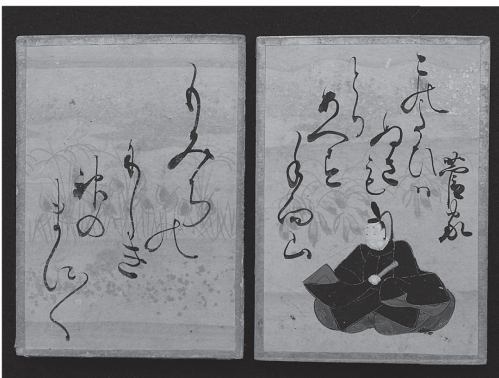 菅家
このたひハ
ぬさも
とり
あへす
手向山
もみちの
にしき
神の
まに〱